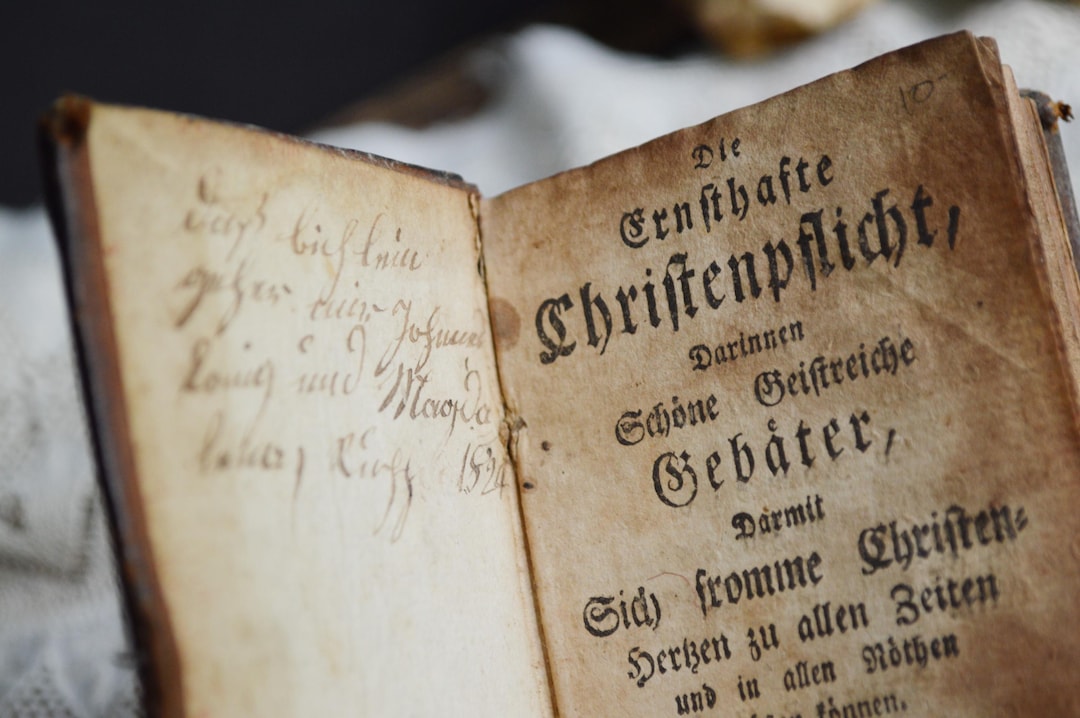 Daß bichlein
geher mir Johannes
König und Magda
lena 1824
10-
Die
Ernsthafte
Christenpflicht,
Darinnen
Schöne Geistreiche
Gebäter,
Darmit
Sich fromme Christen-
Hertzen zu allen Zeiten
und in allen Nöthen
können.